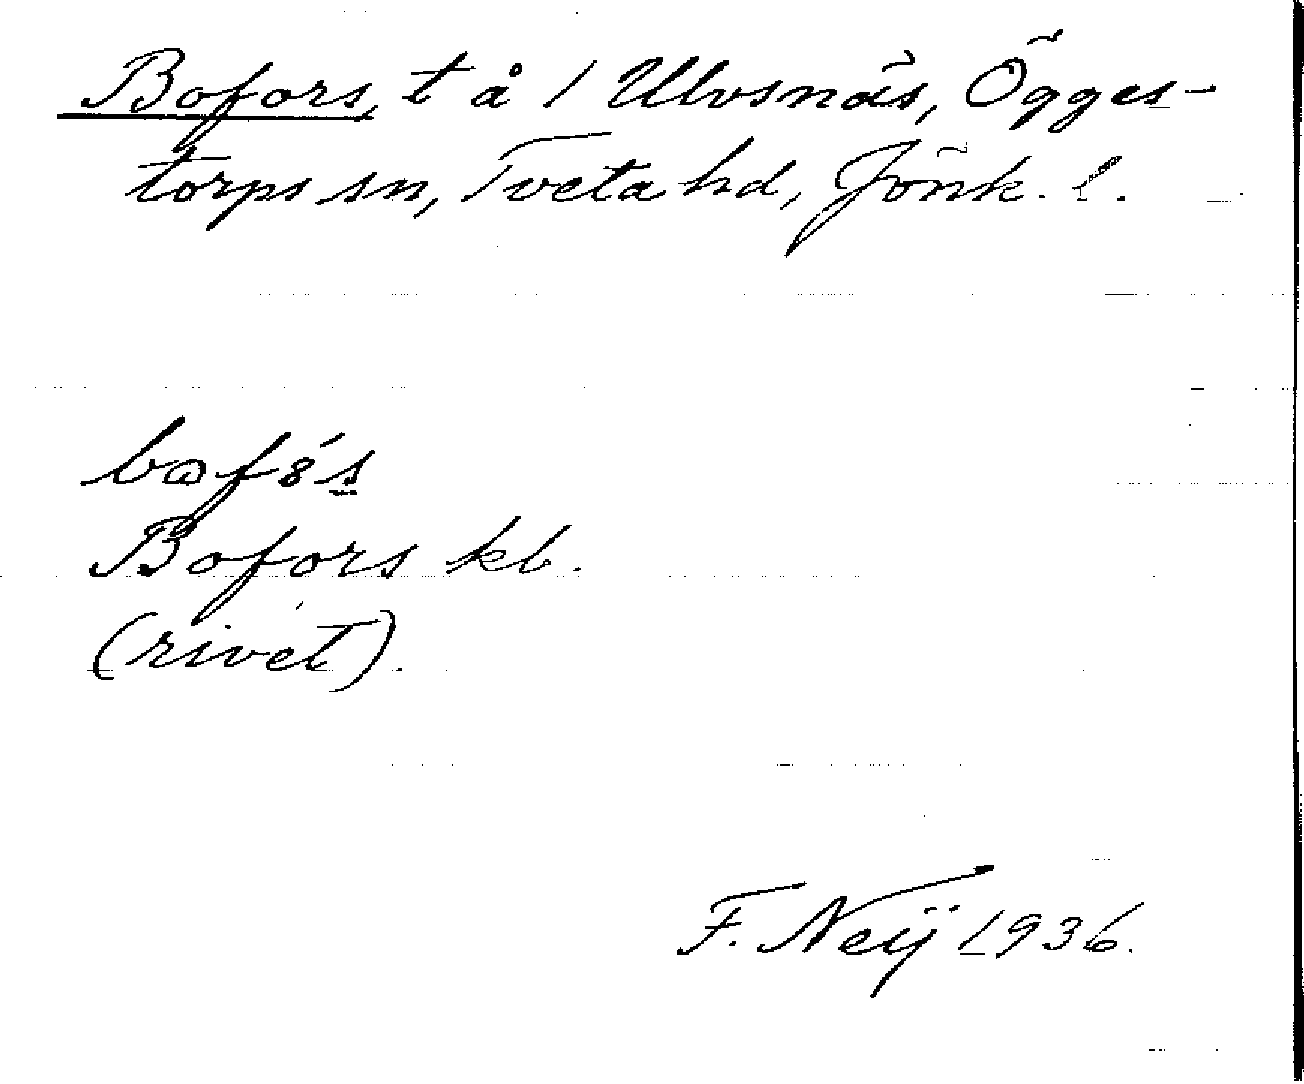 Bofors, t å 1 Ulvsnäs, Ögges-
torps sn, Tveta hd, Jönk. l.
Bofors kb.
(rivet).
F. Neij 1936.